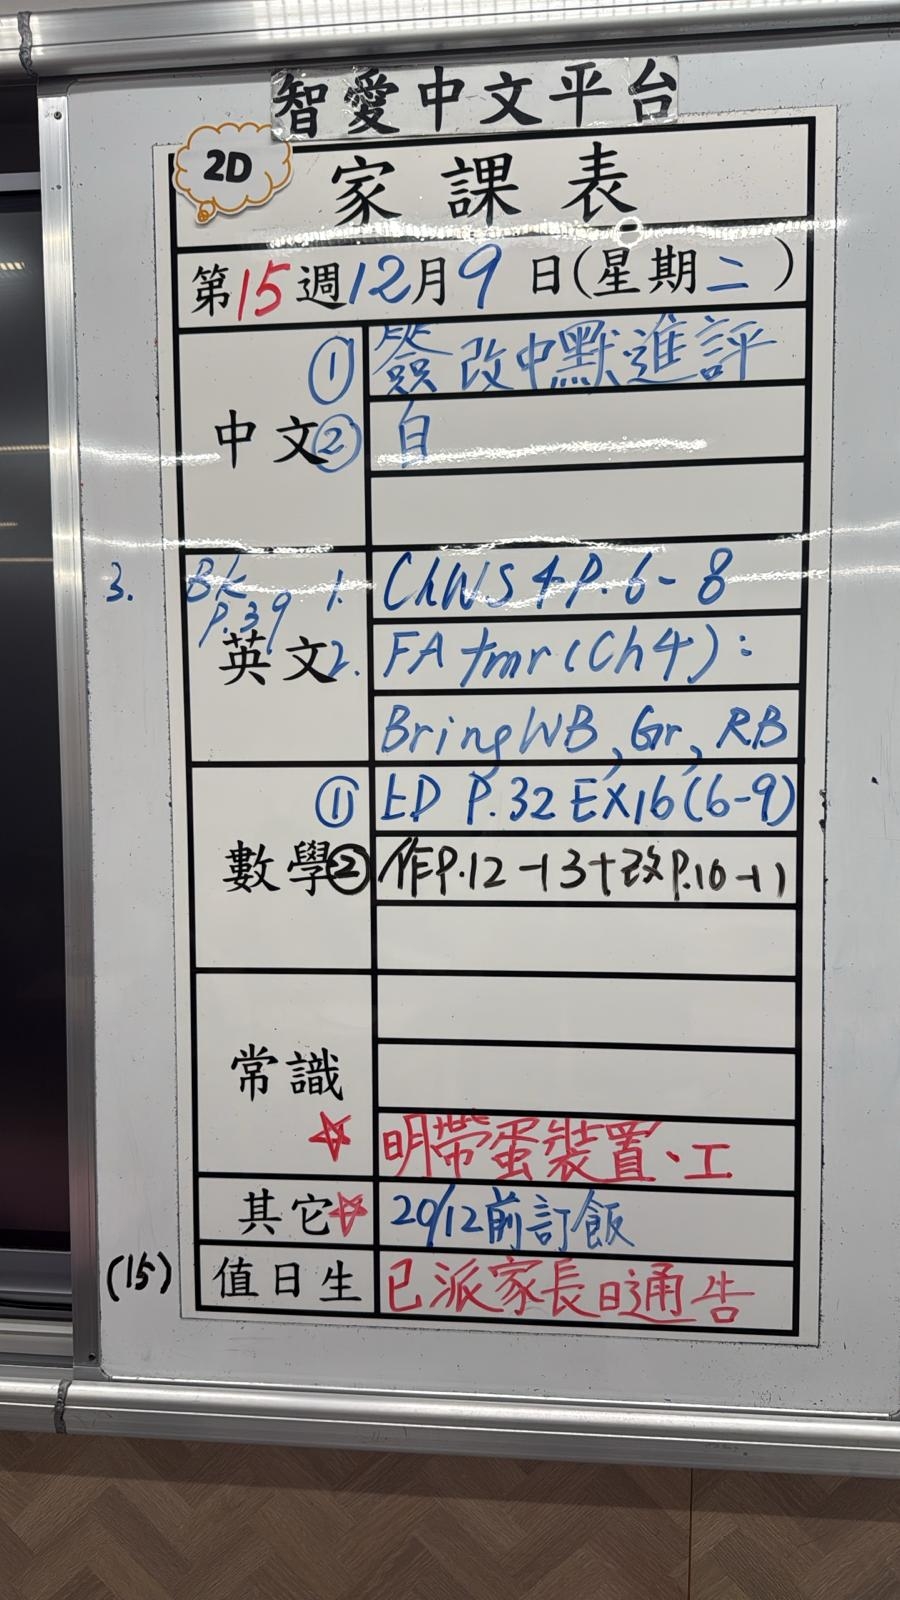 智愛中文平台
2D
家課表
第15週12月9日(星期二)
中文
① 簽改中默進評
② 自
英文
1. ChWS4P.6-8
2. FA tmr (Ch4):
Bring WB, Gr, RB
3. Bk P.39
數學
① ED P.32 EX16(6-9)
② 作P.12-13+改P.10-11
常識
☆ 明帶蛋裝置、工
其它☆ 20/12前訂飯
(15) 值日生 已派家長日通告